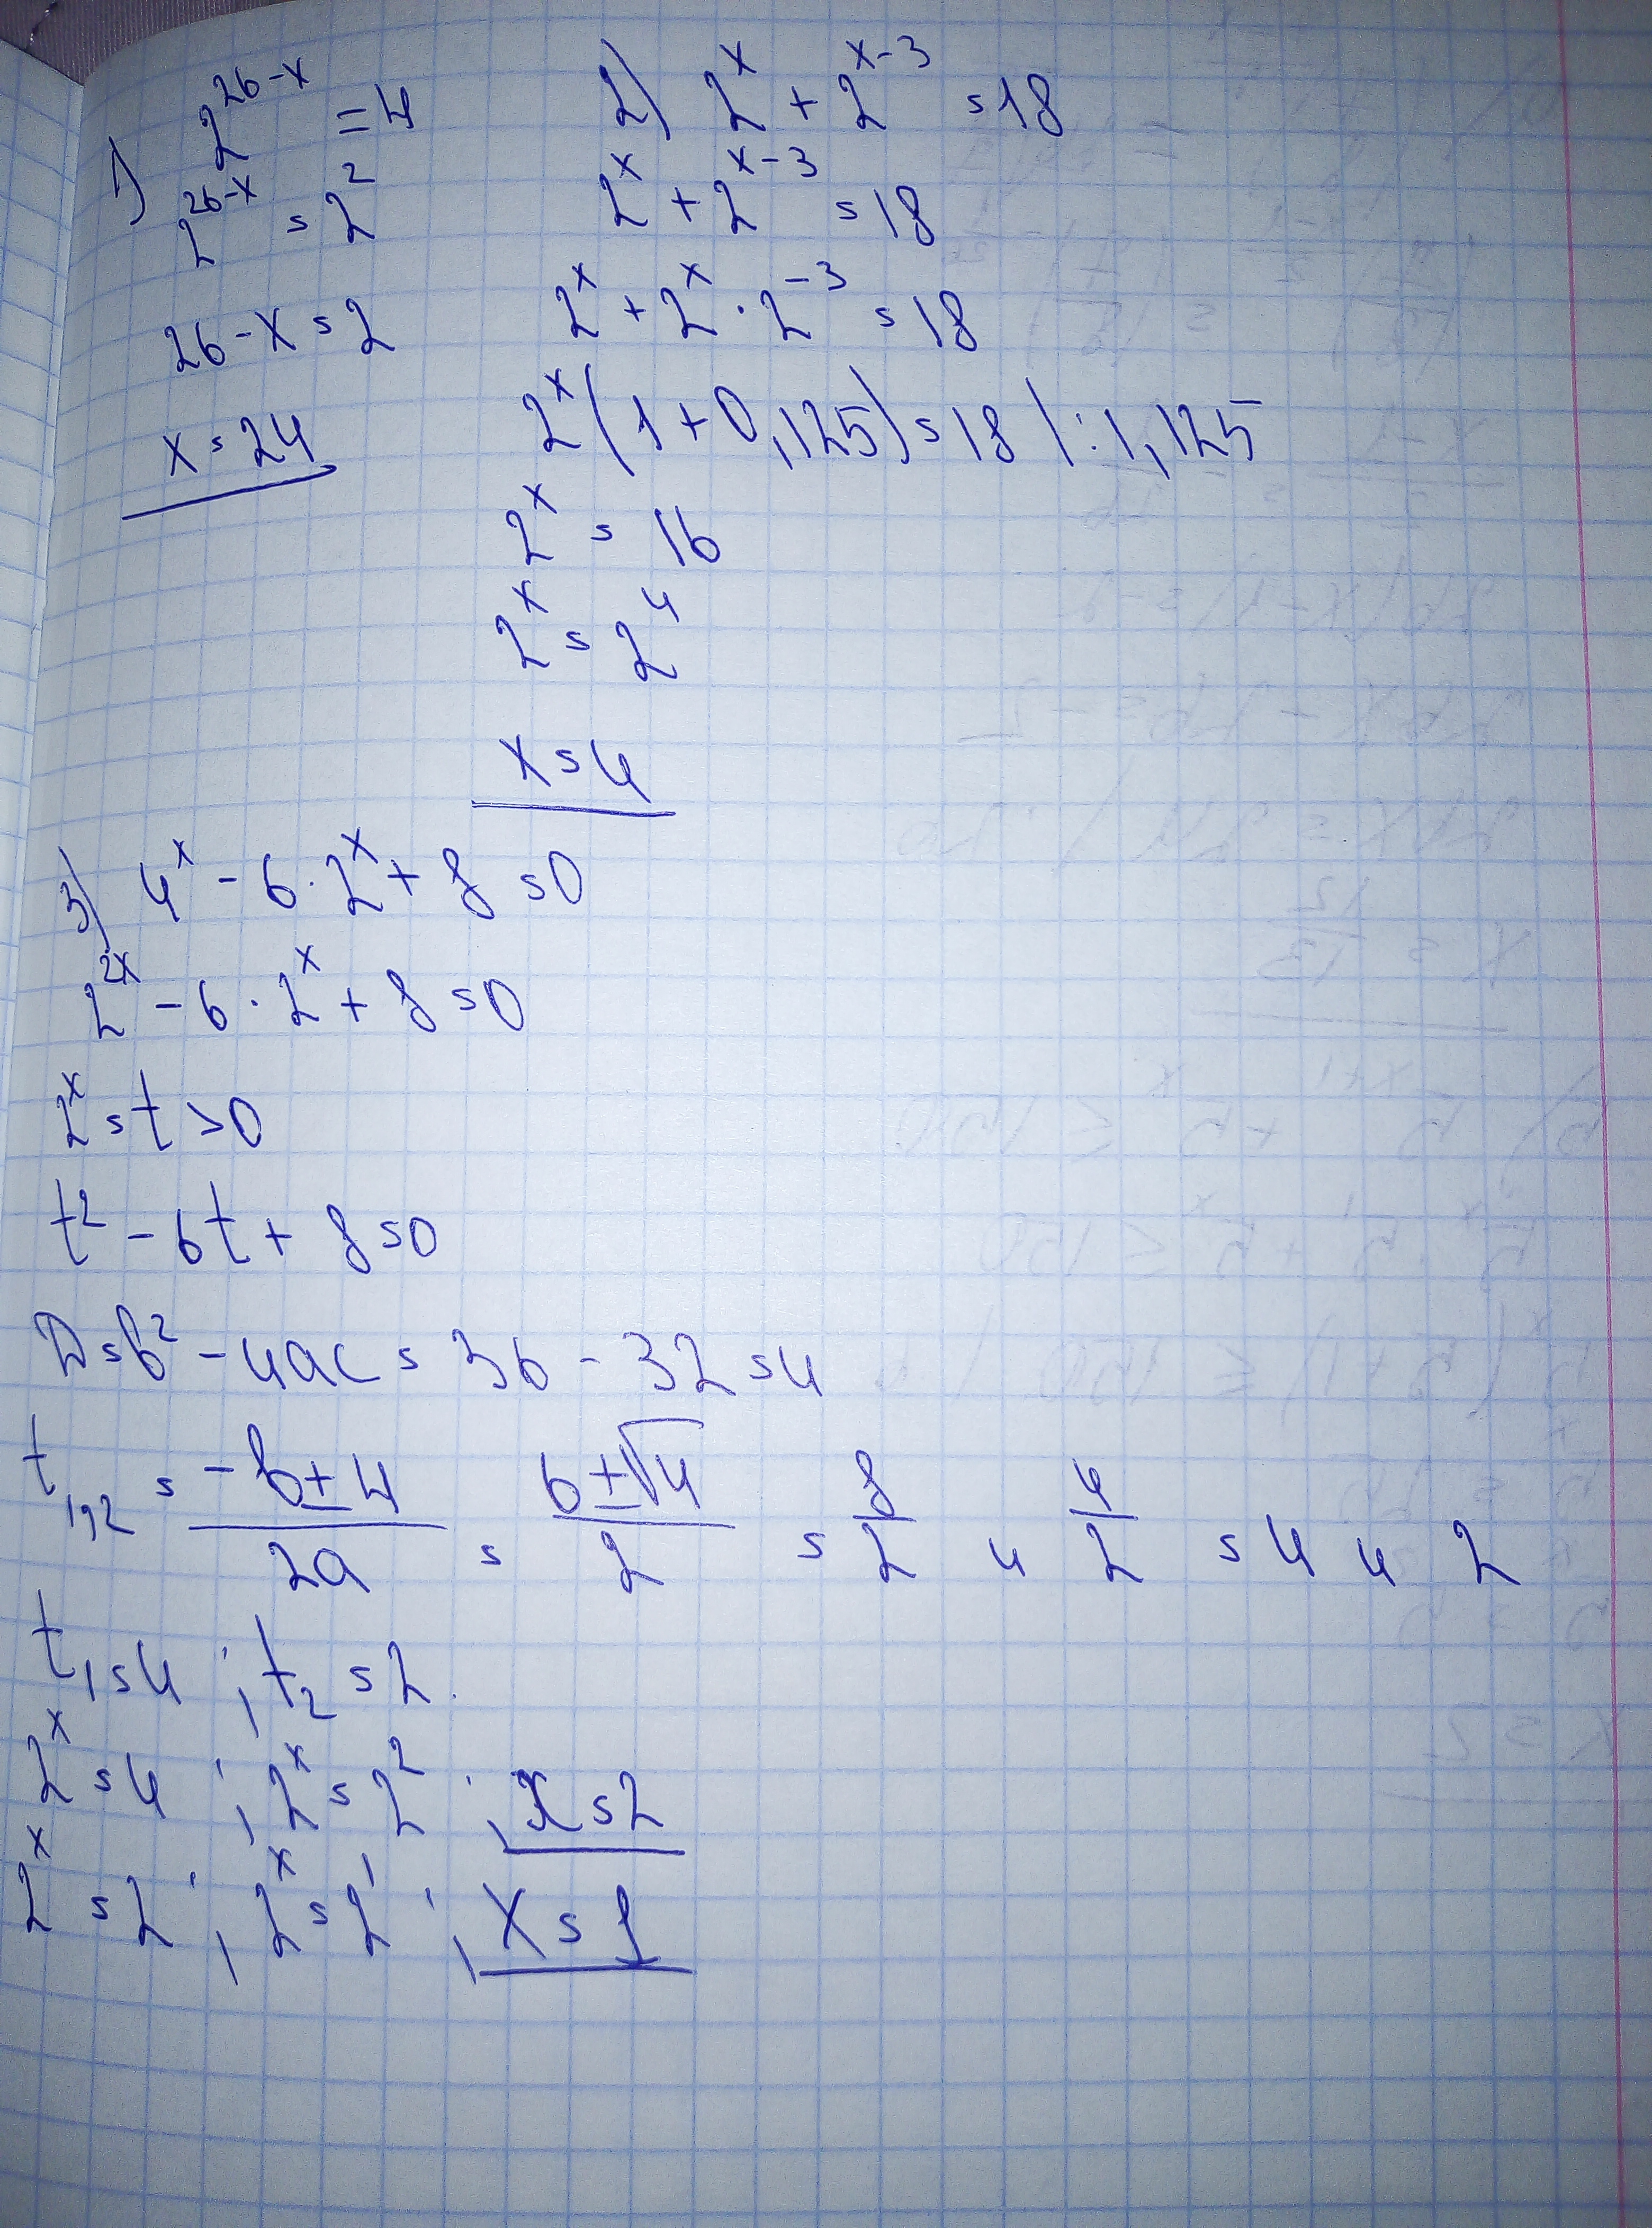 1) 2^{26-x} = 4
2^{26-x} = 2^2
26-x=2
x=24
2) 2^x + 2^{x-3} = 18
2^x + 2^{x-3} = 18
2^x + 2^x · 2^{-3} = 18
2^x (1+0,125) = 18 | : 1,125
2^x = 16
2^x = 2^4
x=4
3) 4^x - 6 · 2^x + 8 = 0
2^{2x} - 6 · 2^x + 8 = 0
2^x = t > 0
t^2 - 6t + 8 = 0
D = b^2 - 4ac = 36 - 32 = 4
t_{1,2} = \frac{-b ± 4}{2a} = \frac{6 ± √4}{2} = \frac{8}{2} и \frac{4}{2} = 4 и 2
t_1 = 4 ; t_2 = 2.
2^x = 4 ; 2^x = 2^2 ; x = 2
2^x = 2 ; 2^x = 2^1 ; x = 1